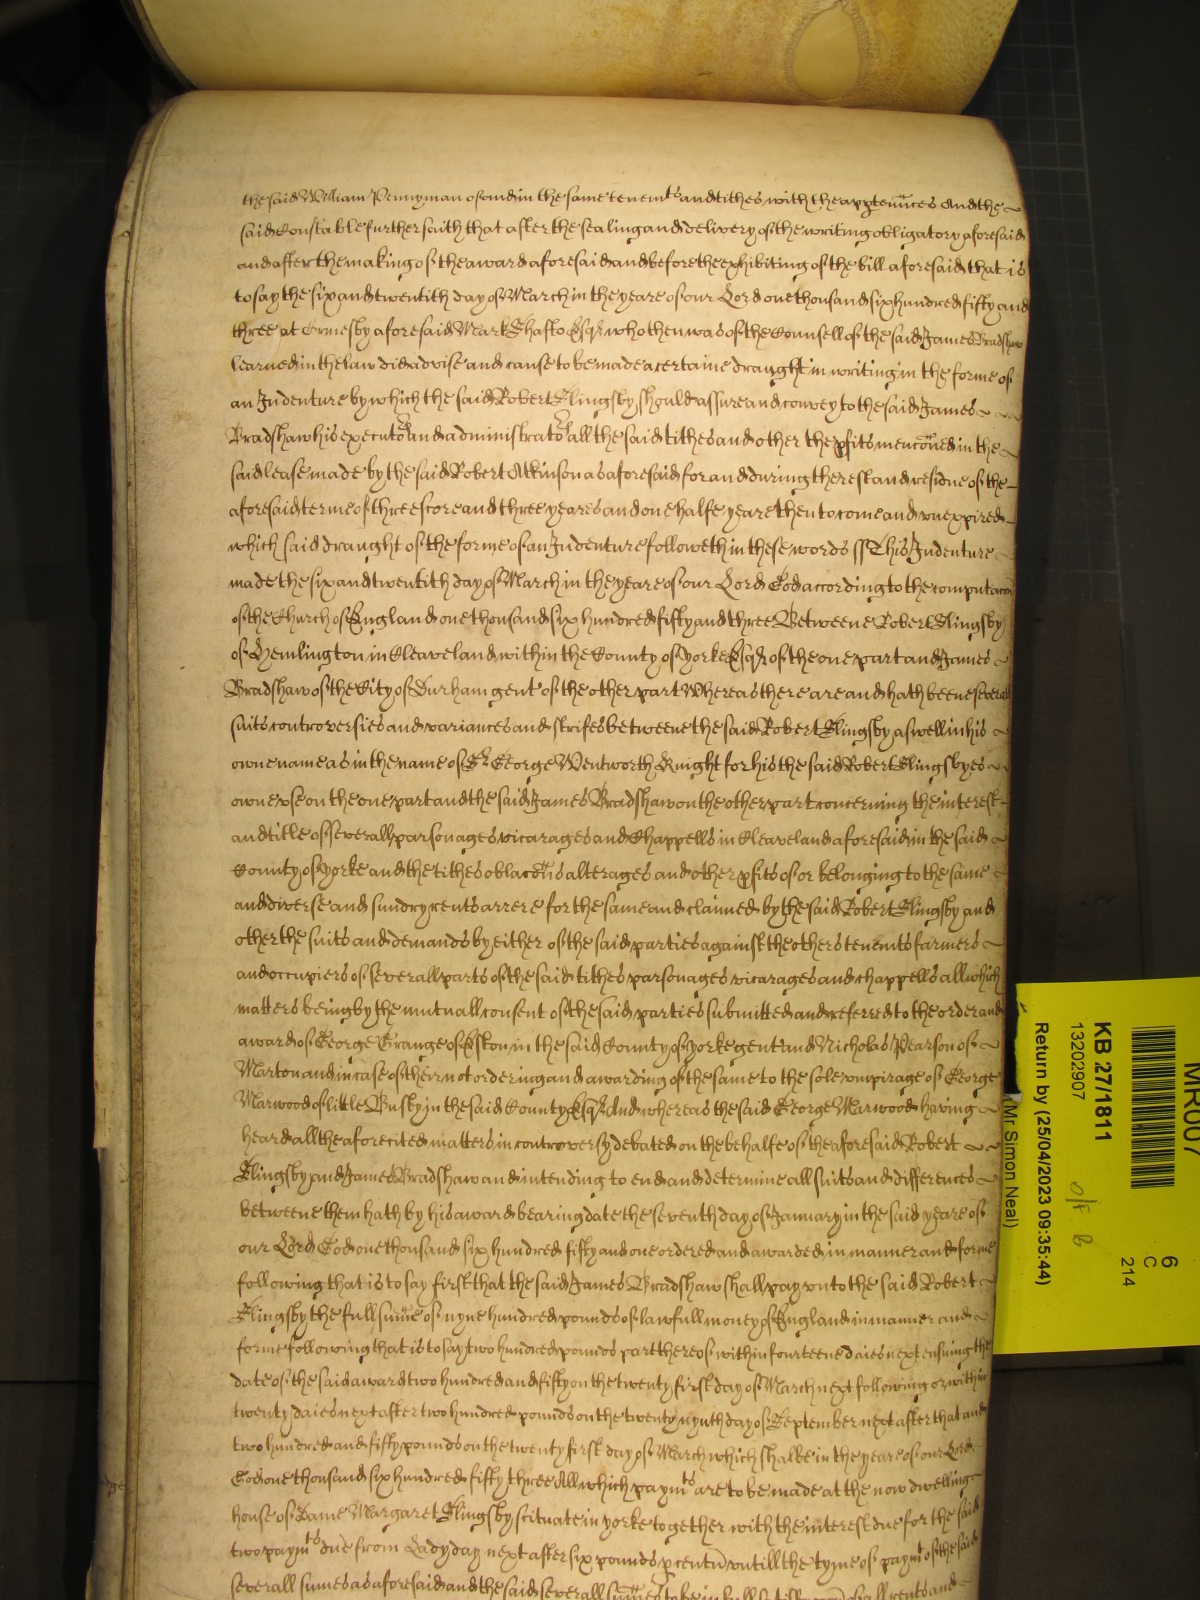 the said William Pennyman of and in the same tenemts and tithes with the apptenn̄ces And the
said Constable further saith that after the sealing and delivery of the writing obligatory aforesaid
and after the making of the award aforesaid and before the exhibiting of the bill aforesaid that is
to say the six and twentith day of March in the yeare of our Lord one thousand six hundred fifty and
three at Ormesby aforesaid Mark Shafto Esqr who then was of the Counsell of the said James Bradshaw
learned in the law did advise and cause to be made a certaine draught in writing in the forme of
an Indenture by which the said Robert Slingsby should assure and convey to the said James
Bradshaw his executors and administrators all the said tithes and other the pfits menc̄oned in the
said lease made by the said Robert Atkinson as aforesaid for and during the rest and residue of the
aforesaid terme of threescore and three yeares and one halfe yeare then to come and vnexpired
which said draught of the forme of an Indenture followeth in these words ss This Indenture
made the six and twentith day of March in the yeare of our Lord God according to the computac̄on
of the Church of England one thousand six hundred fifty and three Betweene Robert Slingsby
of Hemlington in Cleaveland within the County of Yorke Esqr of the one part and James
Bradshaw of the City of Durham gent of the other part Whereas there are and hath beene severall
suits controversies and variances and strifes betweene the said Robert Slingsby aswell in his
owne name as in the name of Sr George Wentworth Knight for his the said Robert Slingsbyes
owne vse on the one part and the said James Bradshaw on the other part concerning the interest
and title of severall parsonages vicarages and Chappells in Cleaveland aforesaid in the said
County of Yorke and the tithes oblac̄ons alterages and other pfits of or belonging to the same
and diverse and sundry rents arrere for the same and claimed by the said Robert Slingsby and
other the suits and demands by either of the said parties against the others tenents farmers
and occupiers of severall parts of the said tithes parsonages vicarages and chappells all which
matters being by the mutuall consent of the said parties submitted and referred to the order and
award of George Grange of Eston in the said County of Yorke gent and Nicholas Pearson of
Marton and in case of their not ordering and awarding of the same to the sole vmpirage of George
Marwood of little Busby in the said County Esqr And whereas the said George Marwood having
heard all the aforecited matters in controversy debated on the behalfe of the aforesaid Robert
Slingsby and James Bradshaw and intending to end and determine all suits and differences
betweene them hath by his award bearing date the seventh day of January in the said yeare of
our Lord God one thousand six hundred fifty and one ordered and awarded in manner and forme
following that is to say first that the said James Bradshaw shall pay vnto the said Robert
Slingsby the full sum̄e of nyne hundred pounds of lawfull money of England in manner and
forme following that is to say two hundred pounds part thereof within fourteene daies next ensuing the
date of the said award two hundred and fifty on the twenty first day of March next following or within
twenty daies next after two hundred pounds on the twenty nynth day of September next after that and
two hundred and fifty pounds on the twenty first day of March which shalbe in the yeare of our Lord
God one thousand six hundred fifty three All which paymts are to be made at the now dwelling
house of Dame Margaret Slingsby scituate in Yorke together with the interest due for the said
two paymts due from Lady day next after six pounds p centū vntill the tyme of paymt of the said
severall sumes as aforesaid and the said severall sum̄es to be in full rents and
MR007
6
C
214
KB 27/1811
13202907
Return by (25/04/2023 09:35:44)
(Mr Simon Neal)